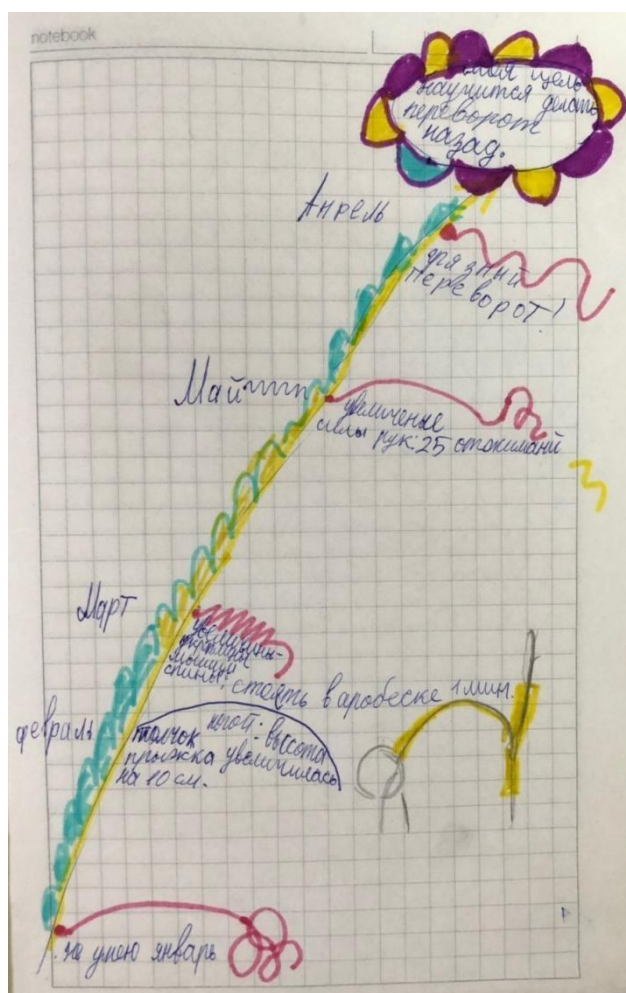 notebook
моя цель
научится делать
переворот
назад.
Апрель
грязный
переворот!
Май
увеличенье
силы рук: 25 отжиманий
Март
мышцы
спины:
стоять в аробеске 1 мин.
февраль
толчок ногой: высота
прыжка увеличилась
на 10 см.
не умею январь